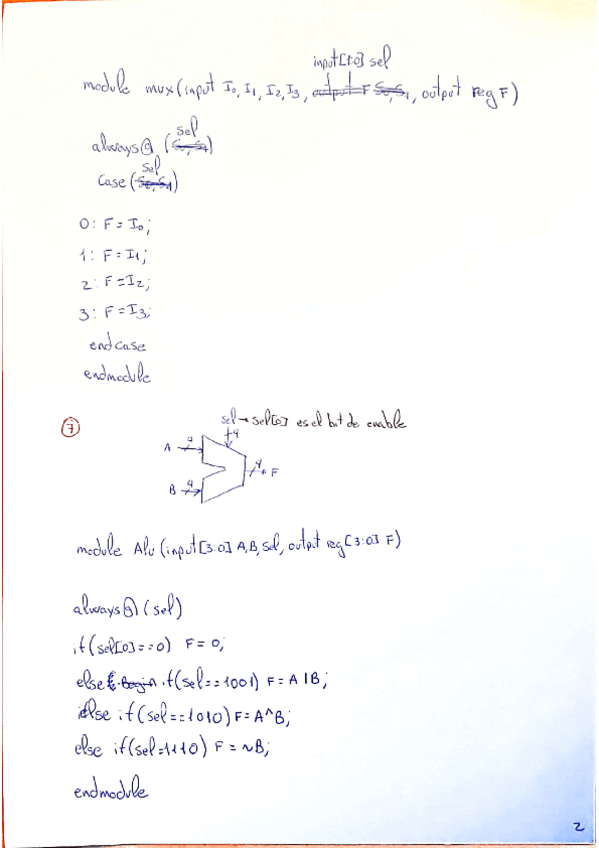 input[1:0] sel
module mux(input I0, I1, I2, I3, output F S0,S1, output reg F)
sel
always@ (S0,S1)
sel
case (S0,S1)
0: F = I0;
1: F = I1;
2: F = I2;
3: F = I3;
endcase
endmodule
7
sel → sel[0] es el bit de enable
4
A 4
4 F
B 4
module Alu (input [3:0] A,B,sel, output reg[3:0] F)
always@ (sel)
if(sel[0]==0) F = 0;
else Begin if(sel==1001) F = A|B;
else if(sel==1010) F = A^B;
else if(sel=1110) F = ~B;
endmodule
2